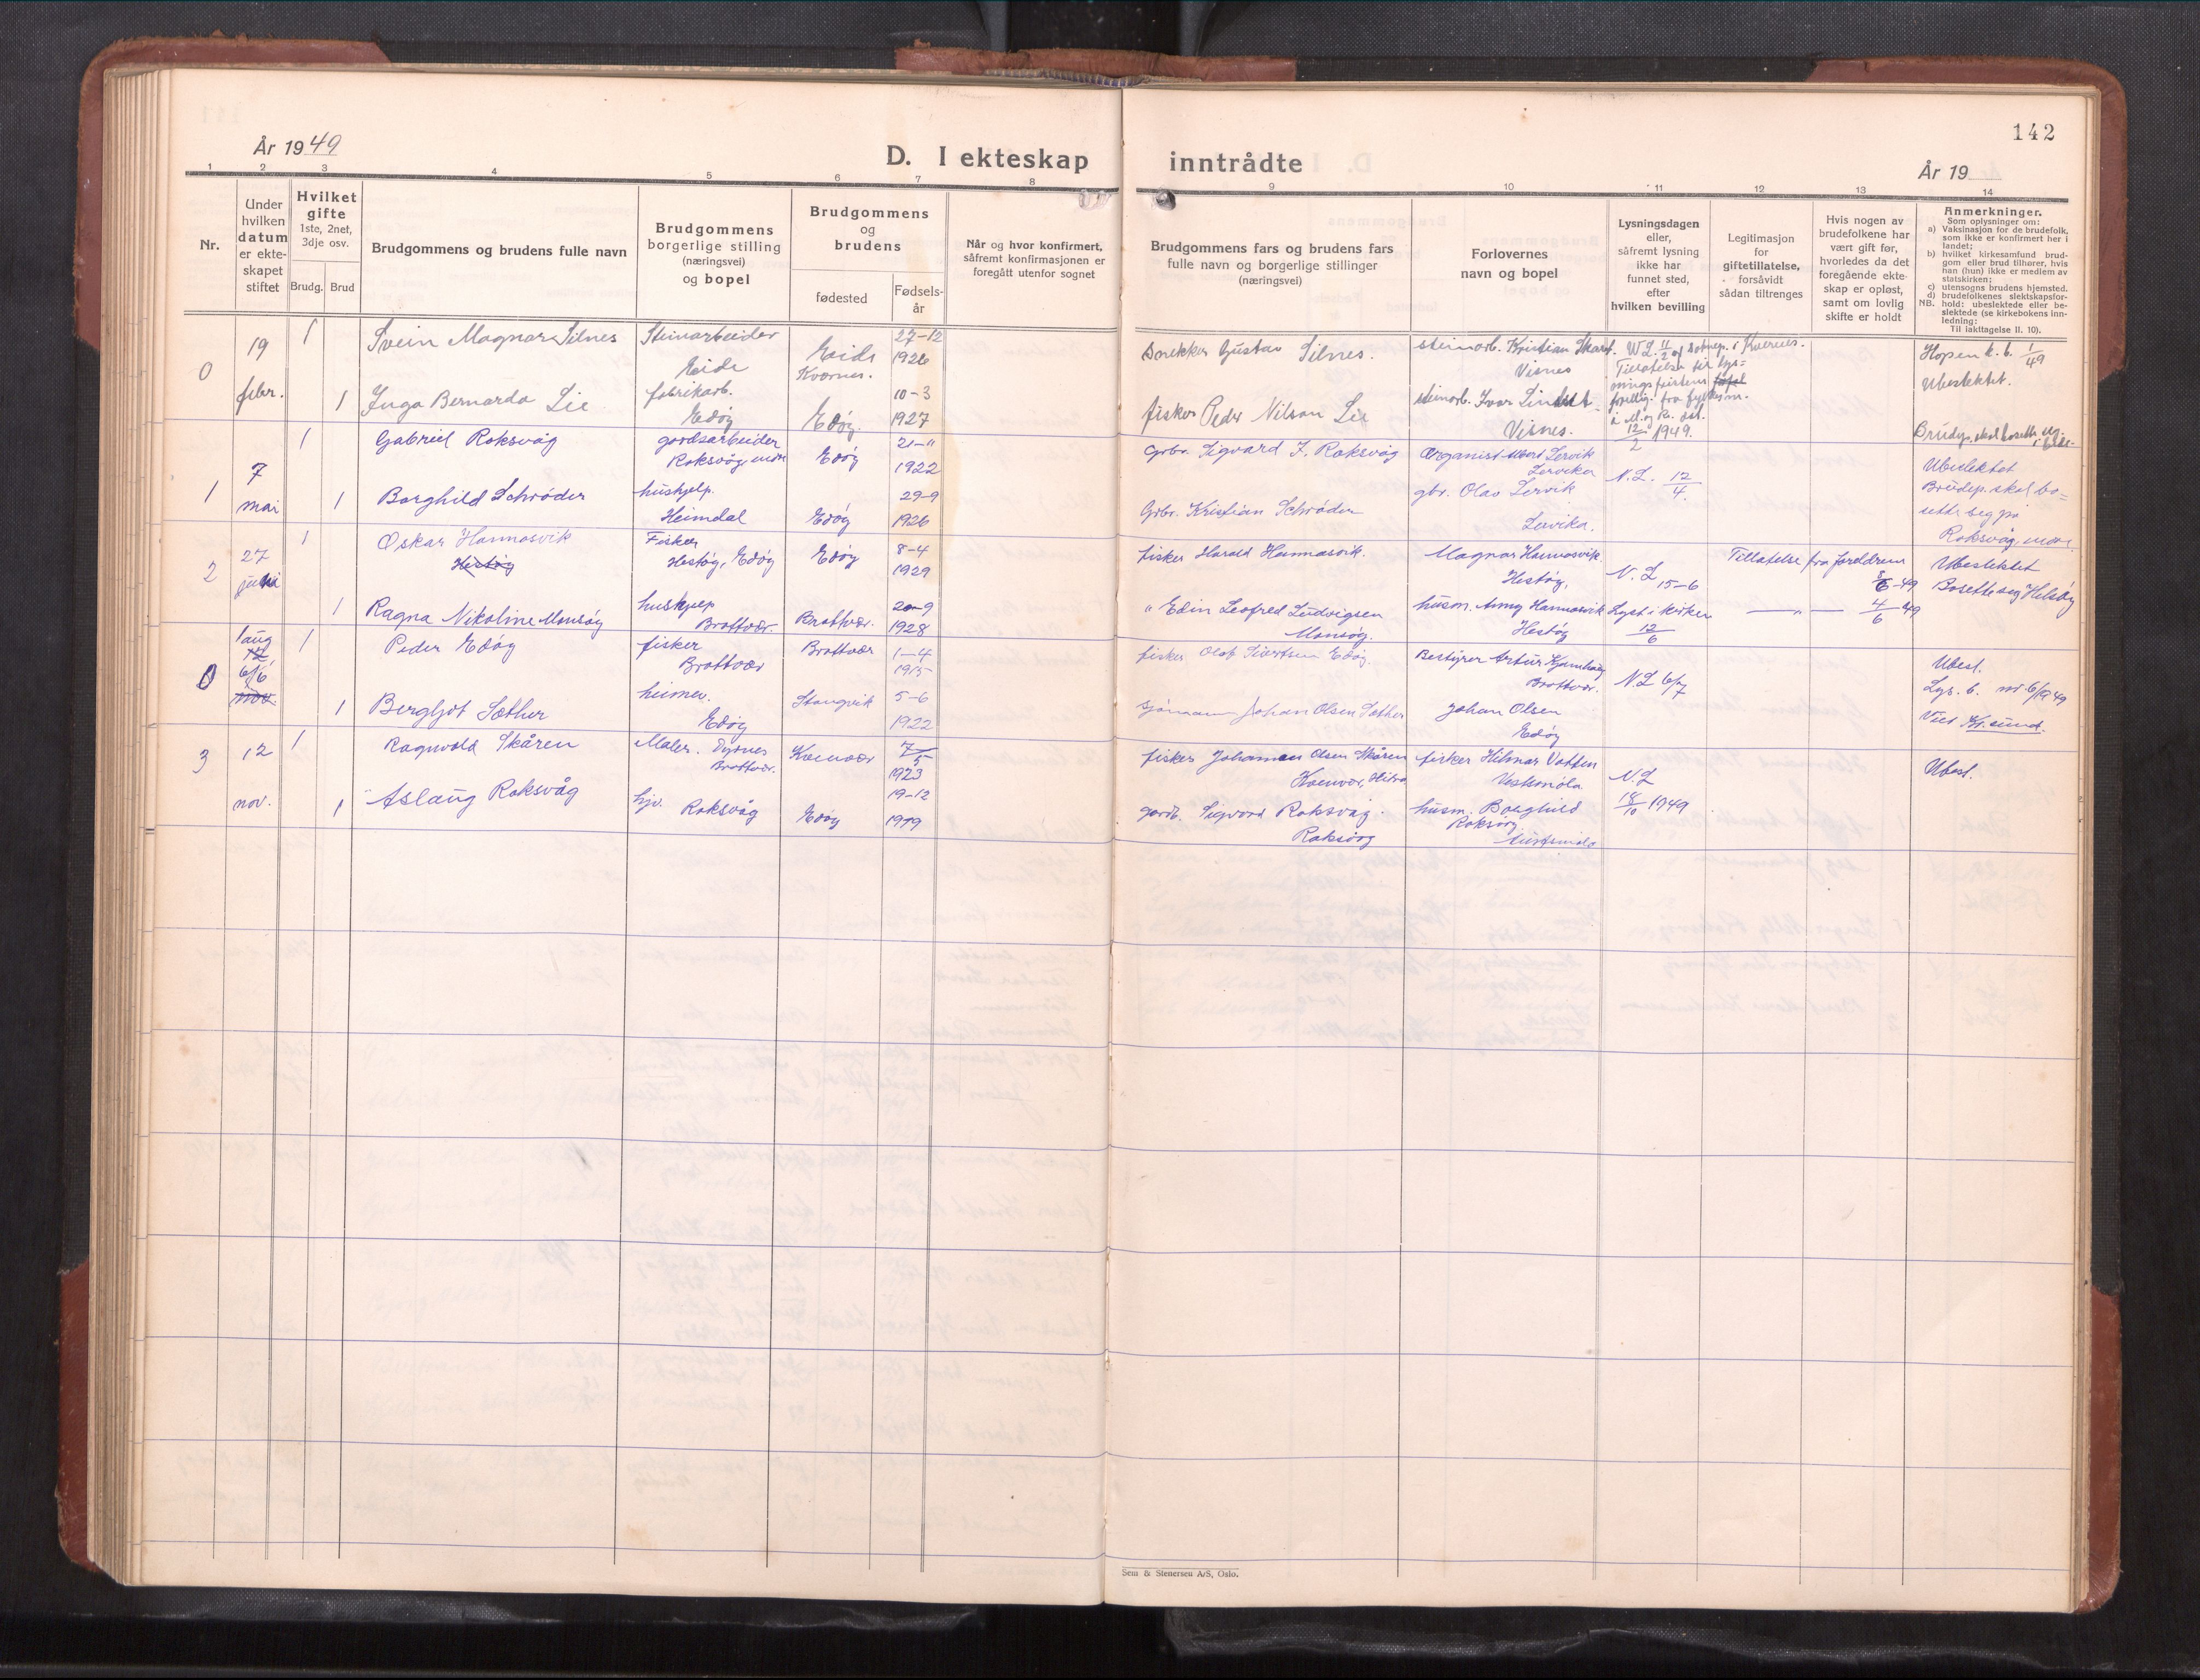 142
År 1949
D. I ekteskap inntrådte
År 19
1 2 3 4 5 6 7 8 9 10 11 12 13 14
Nr.
Under hvilken datum er ekte-skapet stiftet
Hvilket gifte 1ste, 2net, 3dje osv.
Brudg. Brud
Brudgommens og brudens fulle navn
Brudgommens borgerlige stilling (næringsvei) og bopel
Brudgommens og brudens
fødested
Fødsels-år
Når og hvor konfirmert, såfremt konfirmasjonen er foregått utenfor sognet
Brudgommens fars og brudens fars fulle navn og borgerlige stillinger (næringsvei)
Forlovernes navn og bopel
Lysningsdagen eller, såfremt lysning ikke har funnet sted, efter hvilken bevilling
Legitimasjon for giftetillatelse, forsåvidt sådan tiltrenges
Hvis nogen av brudefolkene har vært gift før, hvorledes da det foregående ekte-skap er opløst, samt om lovlig skifte er holdt
Anmerkninger.
Som oplysninger om:
a) Vaksinasjon for de brudefolk, som ikke er konfirmert her i landet;
b) hvilket kirkesamfund brud-gom eller brud tilhører, hvis han (hun) ikke er medlem av statskirken;
c) utensogns brudens hjemsted.
d) brudefolkenes slektskapsfor-
NB. hold: ubeslektede eller be-slektede (se kirkebokens inn-ledning: Til iakttagelse II. 10).
0 19 1 Svein Magnar Silnes Steinarbeider Eide Eide Kvernes. 27-12 1926 Gustav Silnes. steinarb. Kristian Skar Visnes Hopen k.b. 1/49
febr. 1 Inga Bernarda Lie fabrikarb. Edøy Edøy. 10-3 1927 fisker Peder Nilsen Lie steinarb. Ivar Visnes. 12/2 1949. Ubeslektet.
1 7 1 Gabriel Roksvåg gardsarbeider Roksvåg, Edøy 21-11 1922 Grbr. Sigvard J. Roksvåg Organist Albert Lervik Lervika N.L. 12/4. Ubeslektet
mai 1 Borghild Schrøder hushjelp. Heimdal Edøy 29-9 1926 Grbr. Kristian Schrøder gbr. Olav Lervik Lervika. Brudep. skal bo=sette seg på Roksvåg,
2 27 1 Oskar Hannasvik Hestøy Fisker Hestøy, Edøy Edøy 8-4 1929 fisker Harald Hannasvik. Magnar Hannasvik. Hestøy, N.L 15-6 Tillatelse fra foreldrene 8/6-49 Ubeslektet
juni 1 Ragna Nikoline Monsøy hushjelp Brattvær. Brattvær. 20-9 1928 " Edin Leofred Ludvigsen Monsøy. husm. Anny Hannasvik Hestøy Lyst i kirken 12/6 — " — 4/6 49 Bosette seg
0 1 aug 12 6/6 nov. 1 Peder Edøy fisker Brattvær Brattvær 1-4 1915 fisker Olaf Sivertsen Edøy. Bestyrer Artur Brattvær. N.L 6/7 Ubesl.
1 Bergljot Sæther heimev. Edøy Stangvik 5-6 1922 sjømann Johan Olsen Sæther Johan Olsen Edøy Lys. b. nr. 6/1949 Viet Kr.sund.
3 12 1 Ragnvald Skåren Maler. Dyrnes Brattvær. Kvenvær 7/5 1923 fisker Johannen Olsen Skåren Kvenvær, Hitra fisker Hilmar Vatten N.L 18/10 1949 Ubesl.
nov. 1 Aslaug Roksvåg hjv. Roksvåg Edøy 19-12 1919 gardb. Sigvard Roksvåg. Roksvåg husm. Borghild Roksvåg
Sem & Stenersen A/S, Oslo.